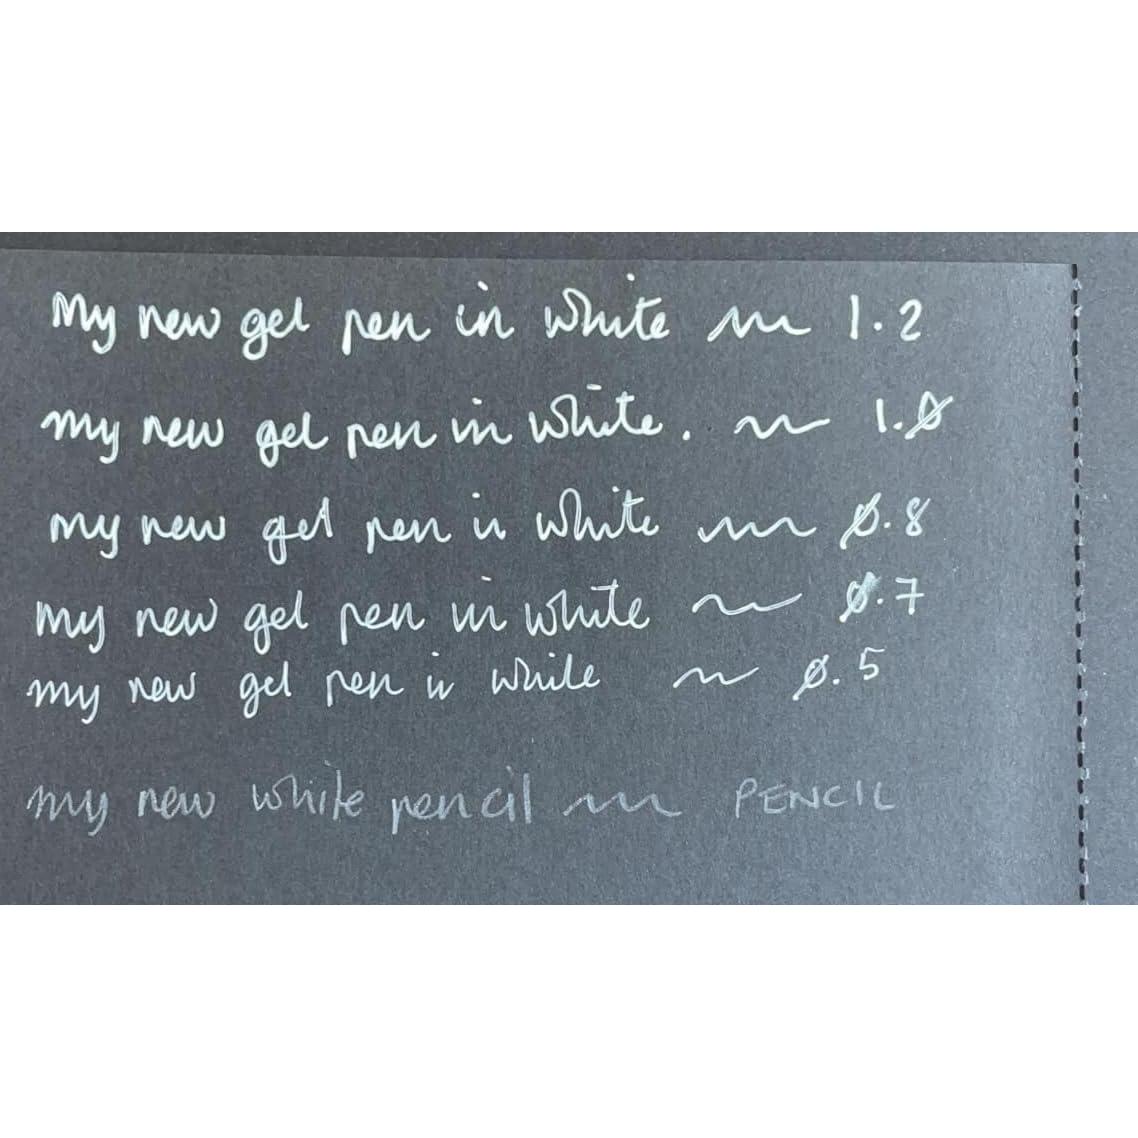 My new gel pen in white 1.2
my new gel pen in white. 1.0
my new gel pen in white 0.8
my new gel pen in white 0.7
my new gel pen in white 0.5
my new white pencil PENCIL